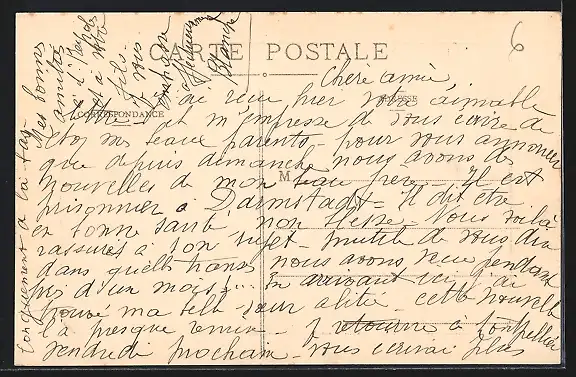 CARTE POSTALE
6
CORRESPONDANCE
ADRESSE
M
Chère amie,
j'ai reçu hier votre aimable
et m'empresse de vous écrire de
chez mes beaux parents - pour vous annoncer
que depuis dimanche nous avons des
nouvelles de mon beau frère - Il est
prisonnier à Darmstadt - Il dit être
en bonne santé, non blessé - Vous voilà
rassurés à son sujet - inutile de vous dire
dans quelles transes nous avons vécu pendant
près d'un mois !... En arrivant ici j'ai
trouvé ma belle-sœur alitée - cette nouvelle
l'a presque remise - Je retourne à Montpellier
vendredi prochain - vous écrirai plus
longuement à la
Mes bonnes
amitiés
à
et à votre
fils
vous
embrasse
Blanche